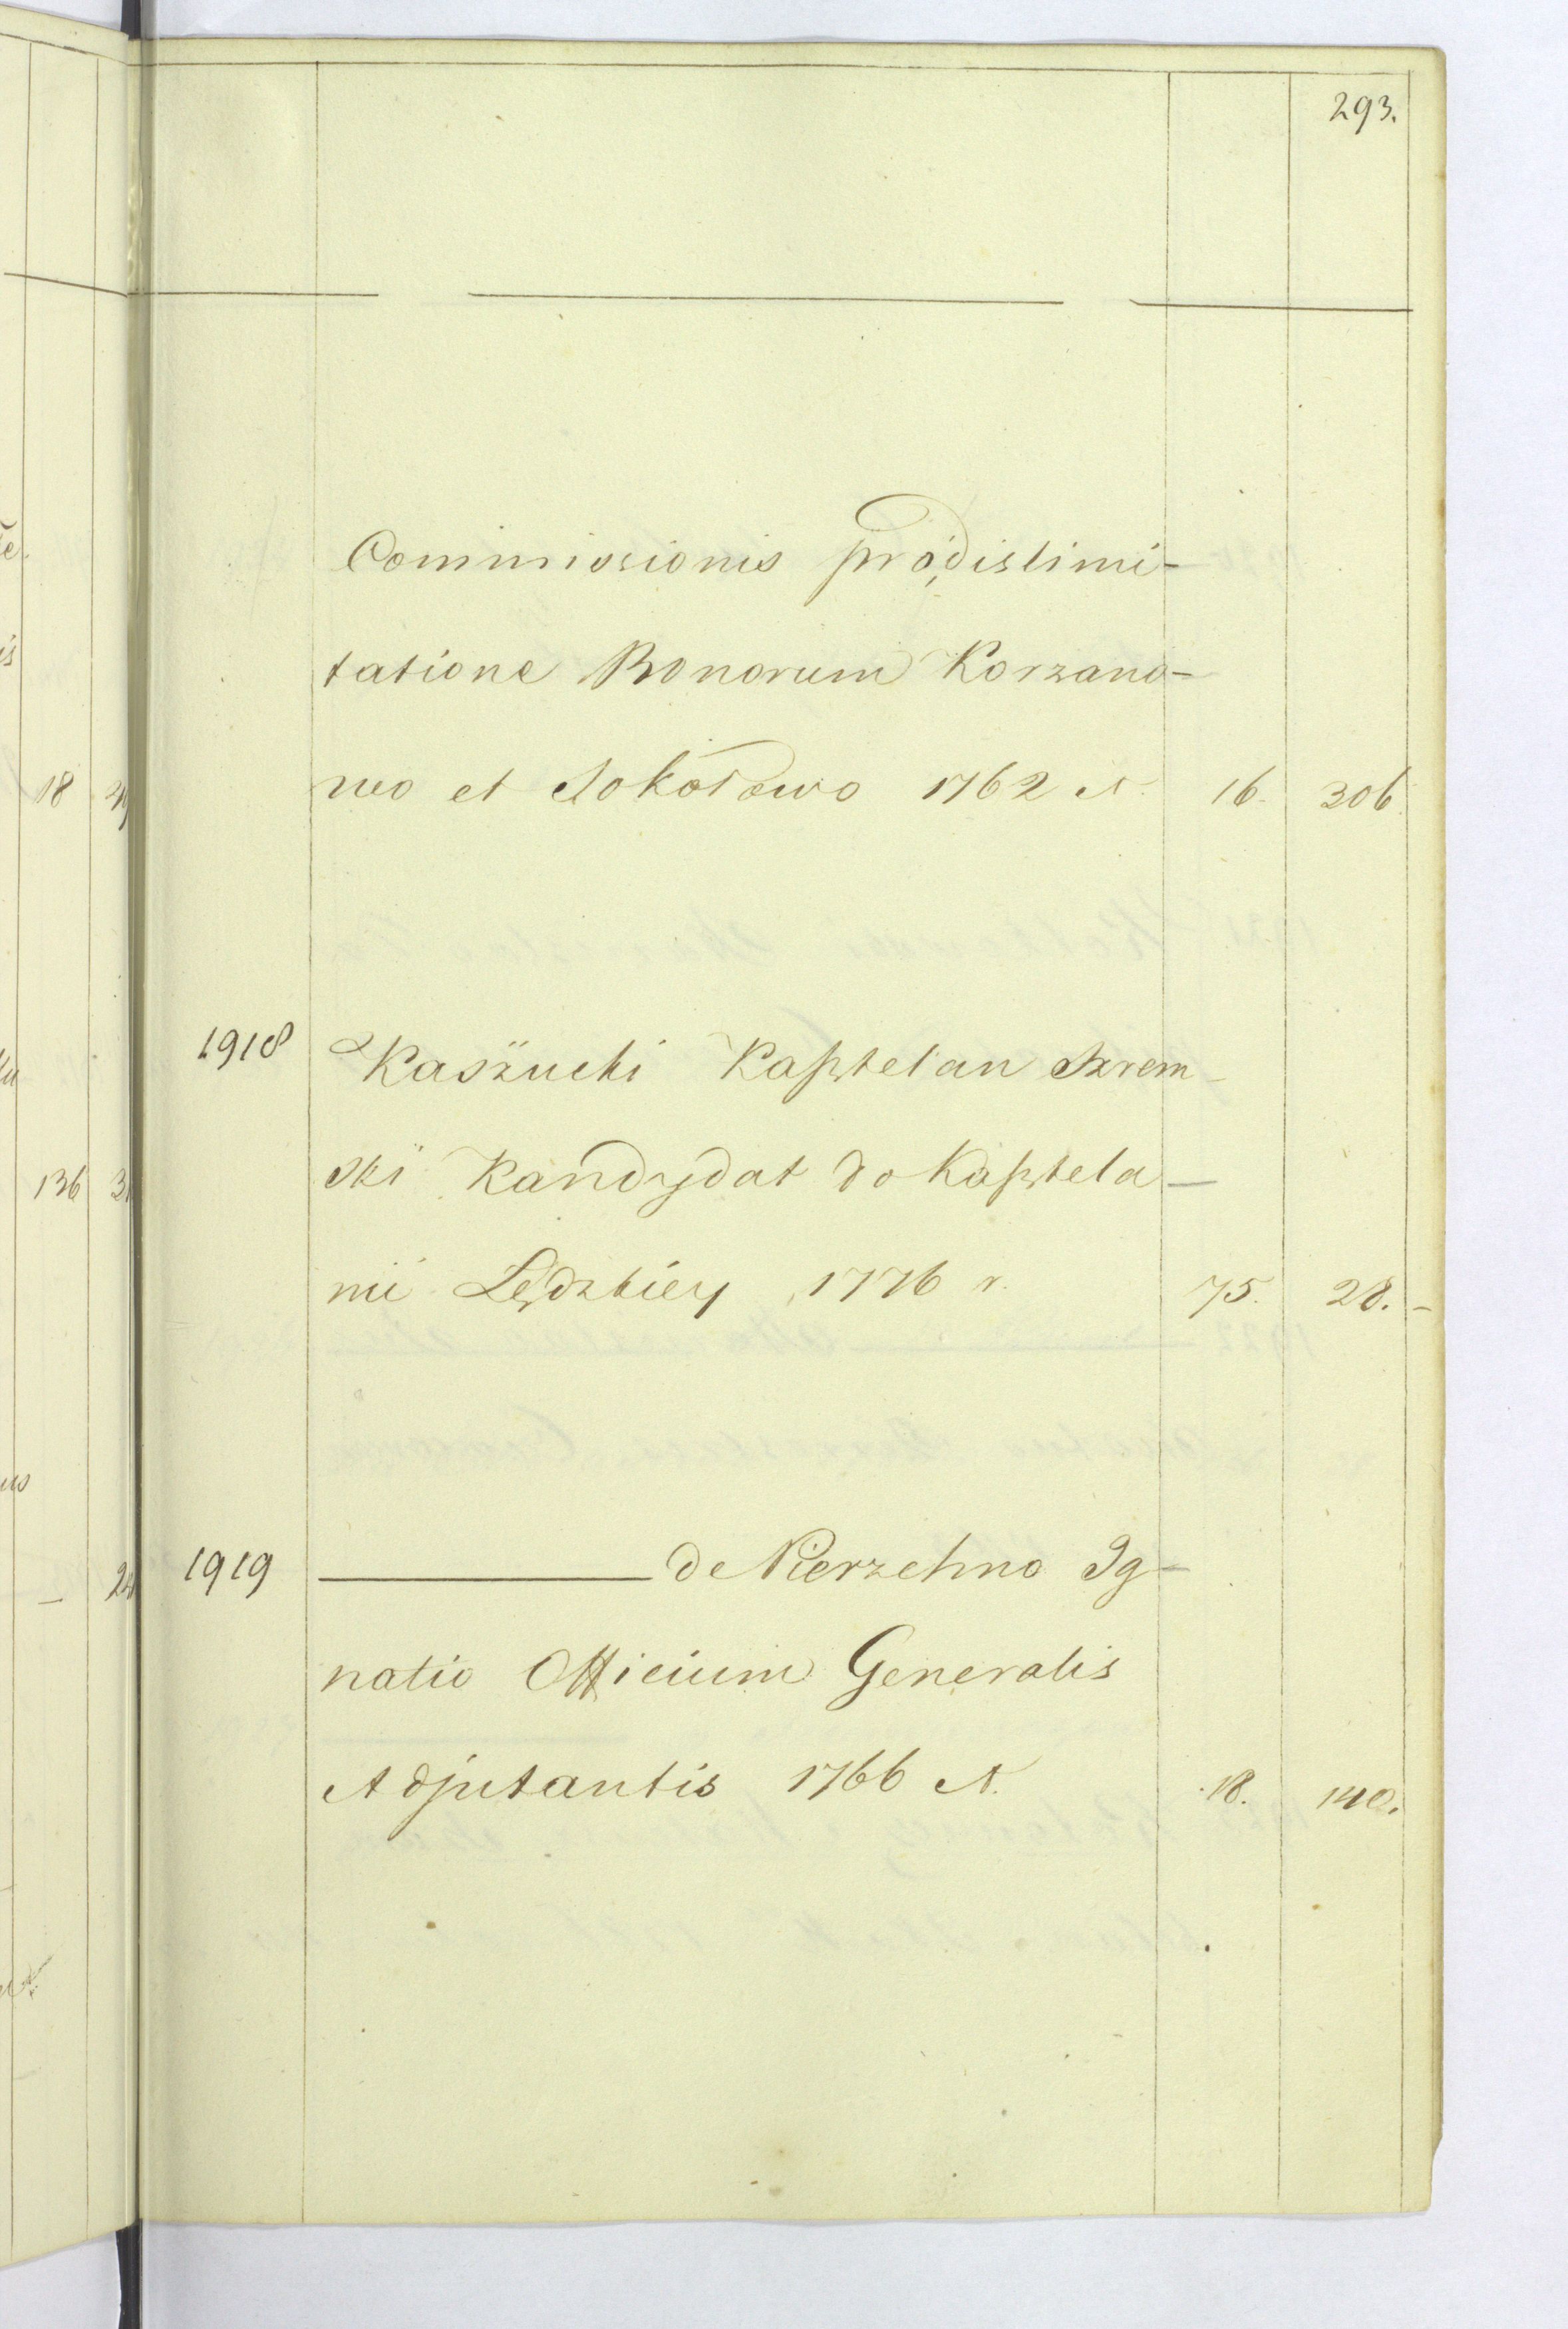 293.
Commissionis pro distimi-
tatione Bonorum Korzano-
wo et Sokołowo 1762 A. 16. 306.
1918 Kasżucki Kasztelan Szrem-
ski Kandydat do Kasztela-
nii Lędzkiey 1776 r. 75. 28.
1919 ——— de Nierzchno Ig-
natio Officium Generalis
Adjutantis 1766 A. 18. 140.
18
136